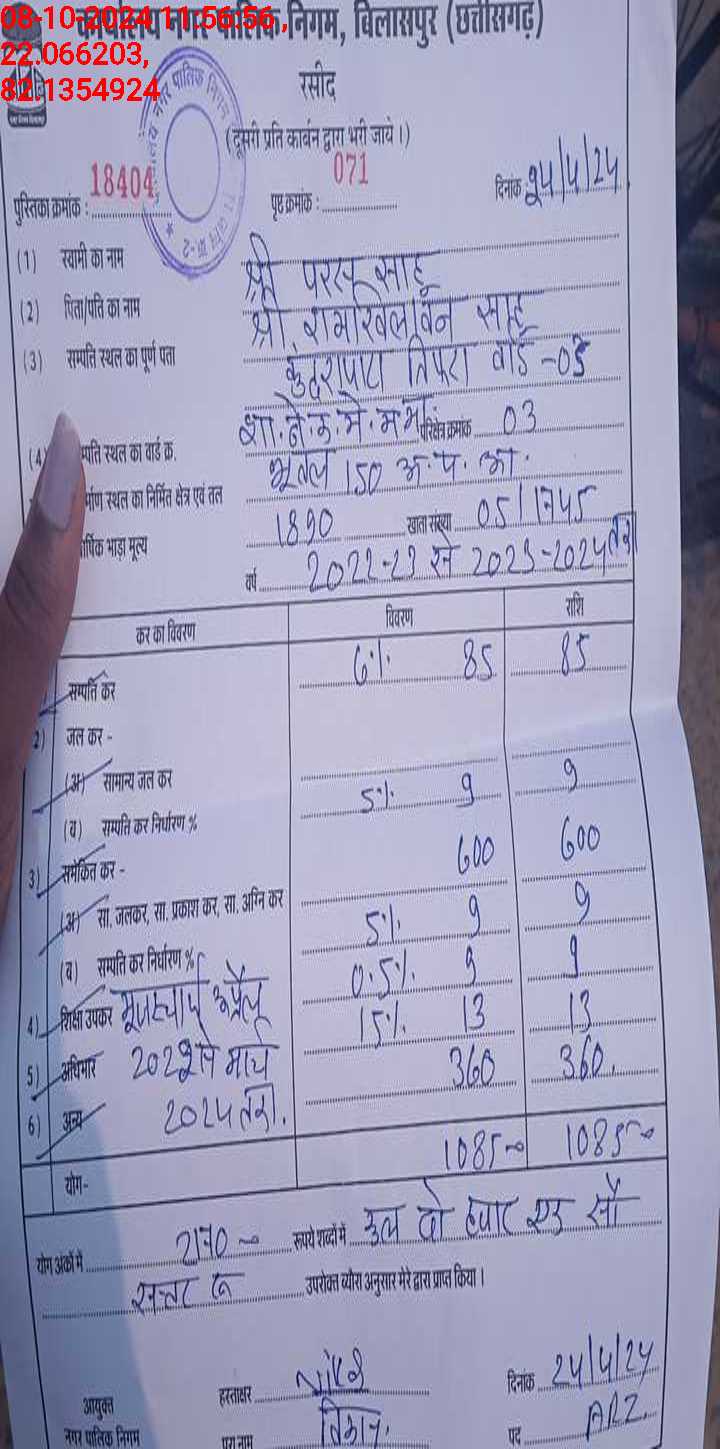 08-10-2024 11:56:56,
22.066203,
82.1354924
कार्यालय नगर पालिक निगम, बिलासपुर (छत्तीसगढ़)
रसीद
(दूसरी प्रति कार्बन द्वारा भरी जाये।)
पुस्तिका क्रमांक : 18404 पृष्ठ क्रमांक : 071 दिनांक 24/4/24
(1) स्वामी का नाम श्री परसू साहू
(2) पिता/पति का नाम श्री. रामखिलावन साहू
(3) सम्पति स्थल का पूर्ण पता कुदरापारा तिफरा वार्ड -03
(4) म्पति स्थल का वार्ड क्र. परिक्षेत्र क्रमांक 03
र्माण स्थल का निर्मित क्षेत्र एवं तल भूतल 150 अ. प. आ.
र्षिक भाड़ा मूल्य 1890 खाता संख्या 05/1745
वर्ष 2022-23 से 2023-2024 तक
कर का विवरण विवरण राशि
सम्पति कर 6% 85 85
2) जल कर -
(अ) सामान्य जल कर
(ब) सम्पति कर निर्धारण % 5% 9 9
3) समेकित कर - 600 600
(अ) सा. जलकर, सा. प्रकाश कर, सा. अग्नि कर
(ब) सम्पति कर निर्धारण % 5% 9 9
4) शिक्षा उपकर 0.5% 9 9
5) अधिभार 15% 13 13
6) अन्य 360 360.
अप्रैल
2022 से मार्च
2024 तक.
योग- 1085 1085
योग अंकों में 2170 रूपये शब्दों में कुल दो हजार एक सौ
सत्तर रु उपरोक्त ब्यौरा अनुसार मेरे द्वारा प्राप्त किया।
आयुक्त हस्ताक्षर दिनांक 24/4/24
नगर पालिक निगम पूरा नाम पद ARI.